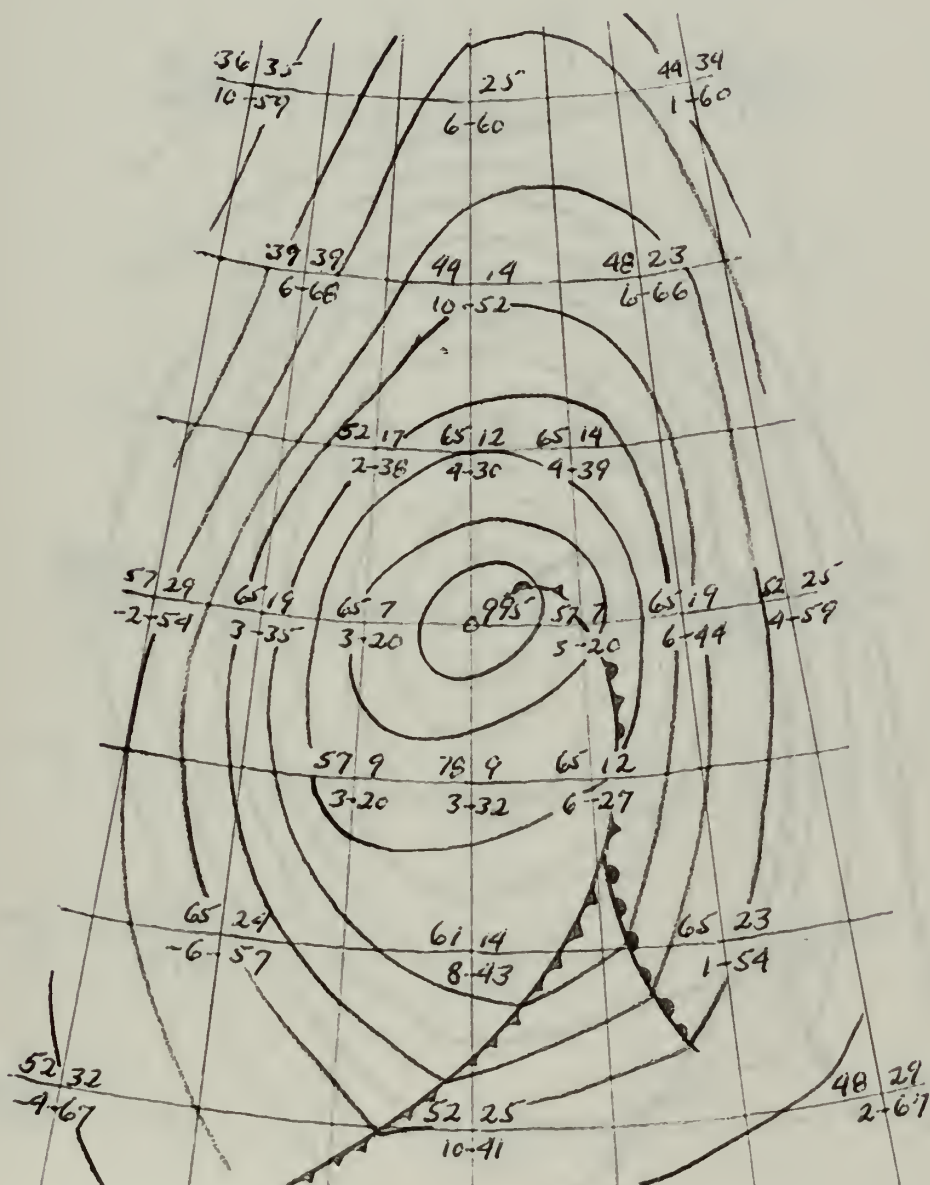 36 35
10-59
25
6-60
44 34
1-60
39 39
6-68
44 14
10-52
48 23
6-66
52 17
2-38
65 12
4-30
65 14
4-39
57 29
-2-54
65 19
3-35
65 7
3-20
995
52 7
5-20
65 19
6-44
52 25
4-59
57 9
3-20
78 9
3-32
65 12
6-27
65 24
-6-57
61 14
8-43
65 23
1-54
52 32
-4-67
52 25
10-41
48 29
2-67